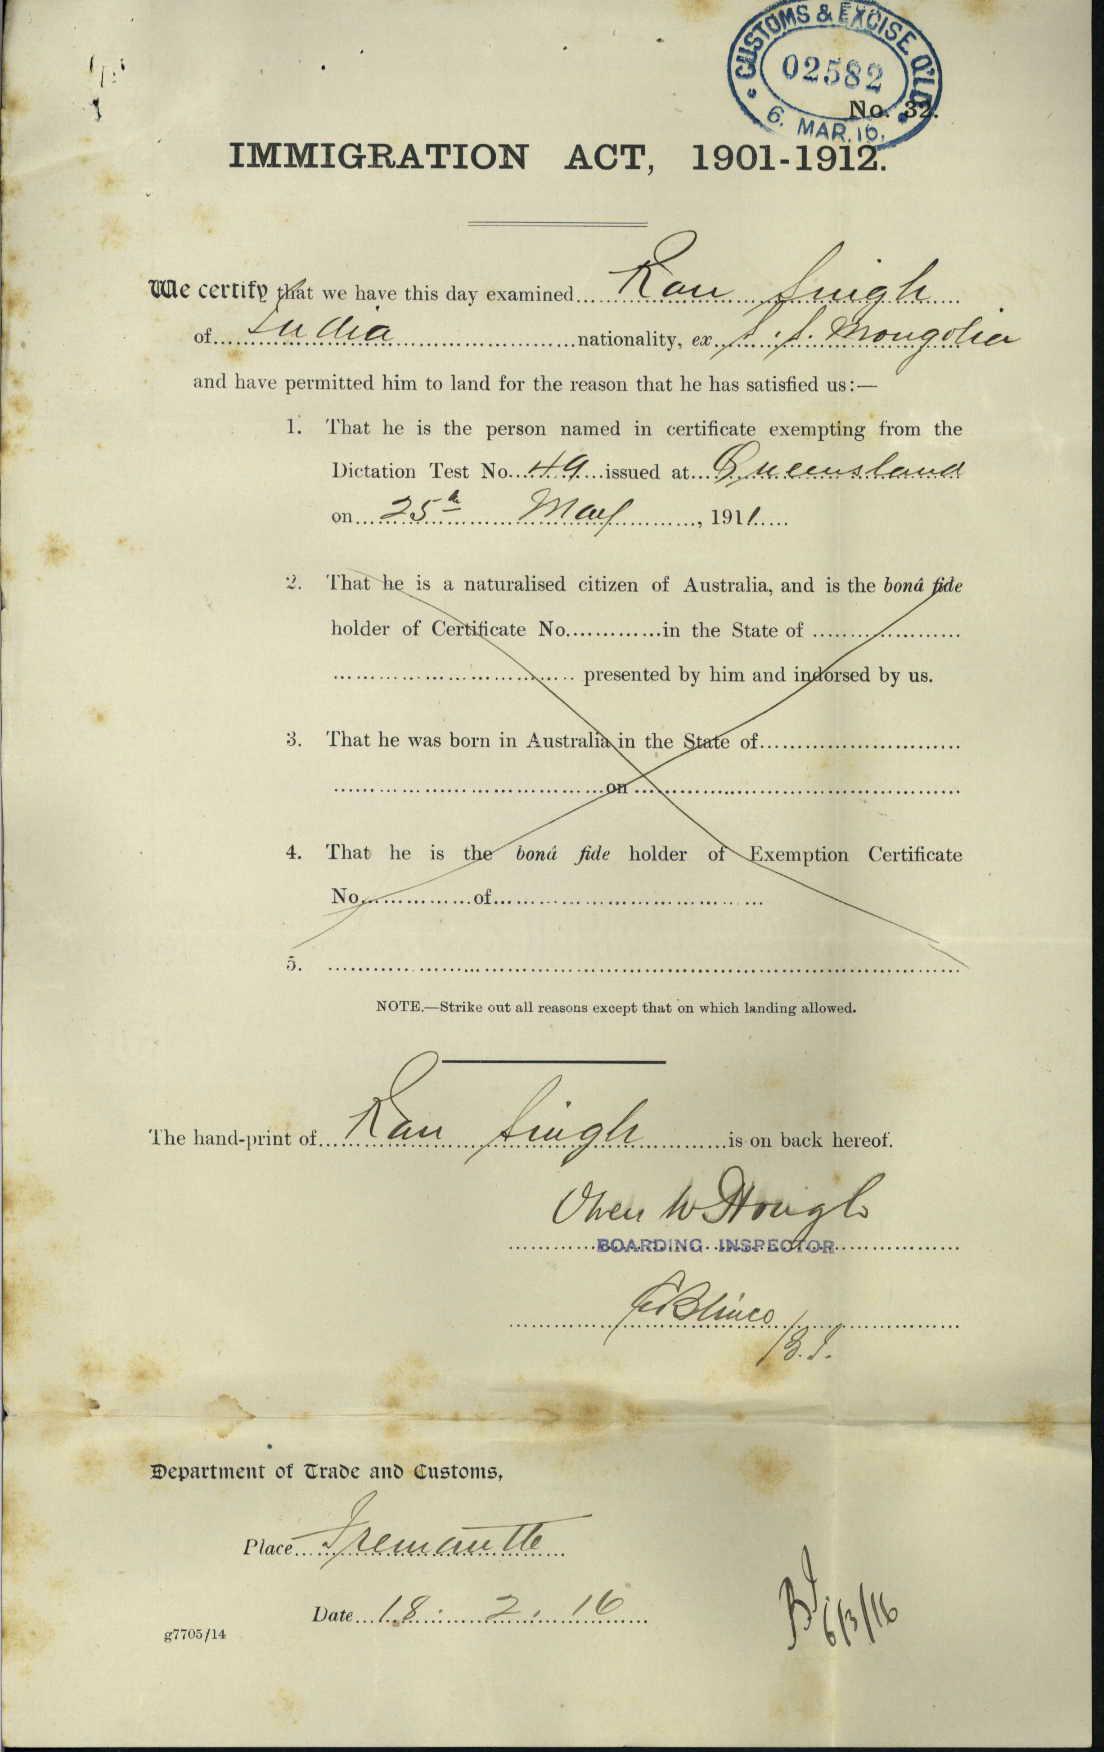 CUSTOMS & EXCISE. Q'LD
02582
6. MAR. 16.
No. 32.
IMMIGRATION ACT, 1901-1912.
We certify that we have this day examined Ran Singh
of India nationality, ex S. S. Mongolia
and have permitted him to land for the reason that he has satisfied us:—
1. That he is the person named in certificate exempting from the
Dictation Test No. 49 issued at Queensland
on 25th May, 1911
2. That he is a naturalised citizen of Australia, and is the bonâ fide
holder of Certificate No. in the State of
presented by him and indorsed by us.
3. That he was born in Australia in the State of
on
4. That he is the bonâ fide holder of Exemption Certificate
No. of
5.
NOTE.—Strike out all reasons except that on which landing allowed.
The hand-print of Ran Singh is on back hereof.
Owen W
BOARDING INSPECTOR
B.I.
Department of Trade and Customs,
Place Fremantle
Date 18. 2. 16
6/3/16
g7705/14